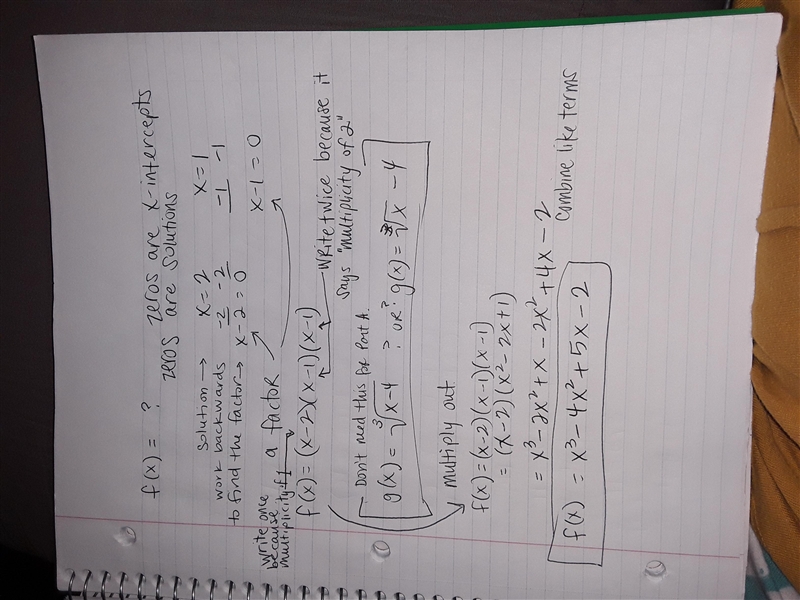 f(x) = ?
zeros are x-intercepts
zeros are solutions
solution → x = 2 x = 1
work backwards -2 -2 -1 -1
to find the factor → x - 2 = 0 x - 1 = 0
a factor
write once
because
multiplicity of 1
f(x) = (x-2)(x-1)(x-1)
write twice because it
says "multiplicity of 2"
Don't need this for Part A.
g(x) = ∛(x-4) ? OR? g(x) = ∛x - 4
multiply out
f(x) = (x-2)(x-1)(x-1)
= (x-2)(x² - 2x + 1)
= x³ - 2x² + x - 2x² + 4x - 2
Combine like terms
f(x) = x³ - 4x² + 5x - 2